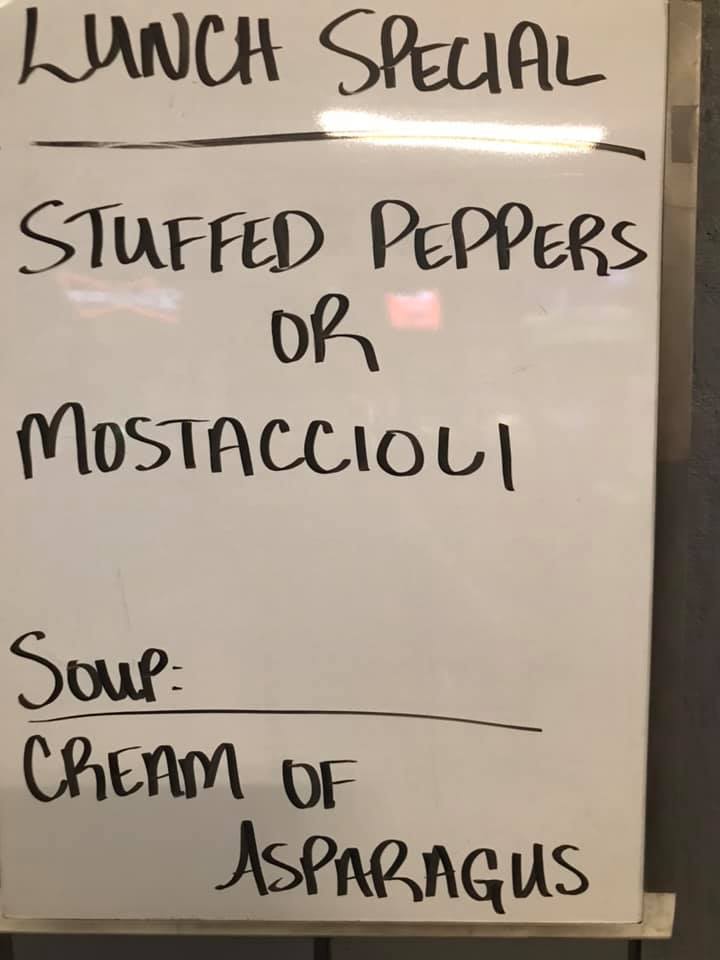 LUNCH SPECIAL
STUFFED PEPPERS
OR
MOSTACCIOLI
SOUP:
CREAM OF
ASPARAGUS